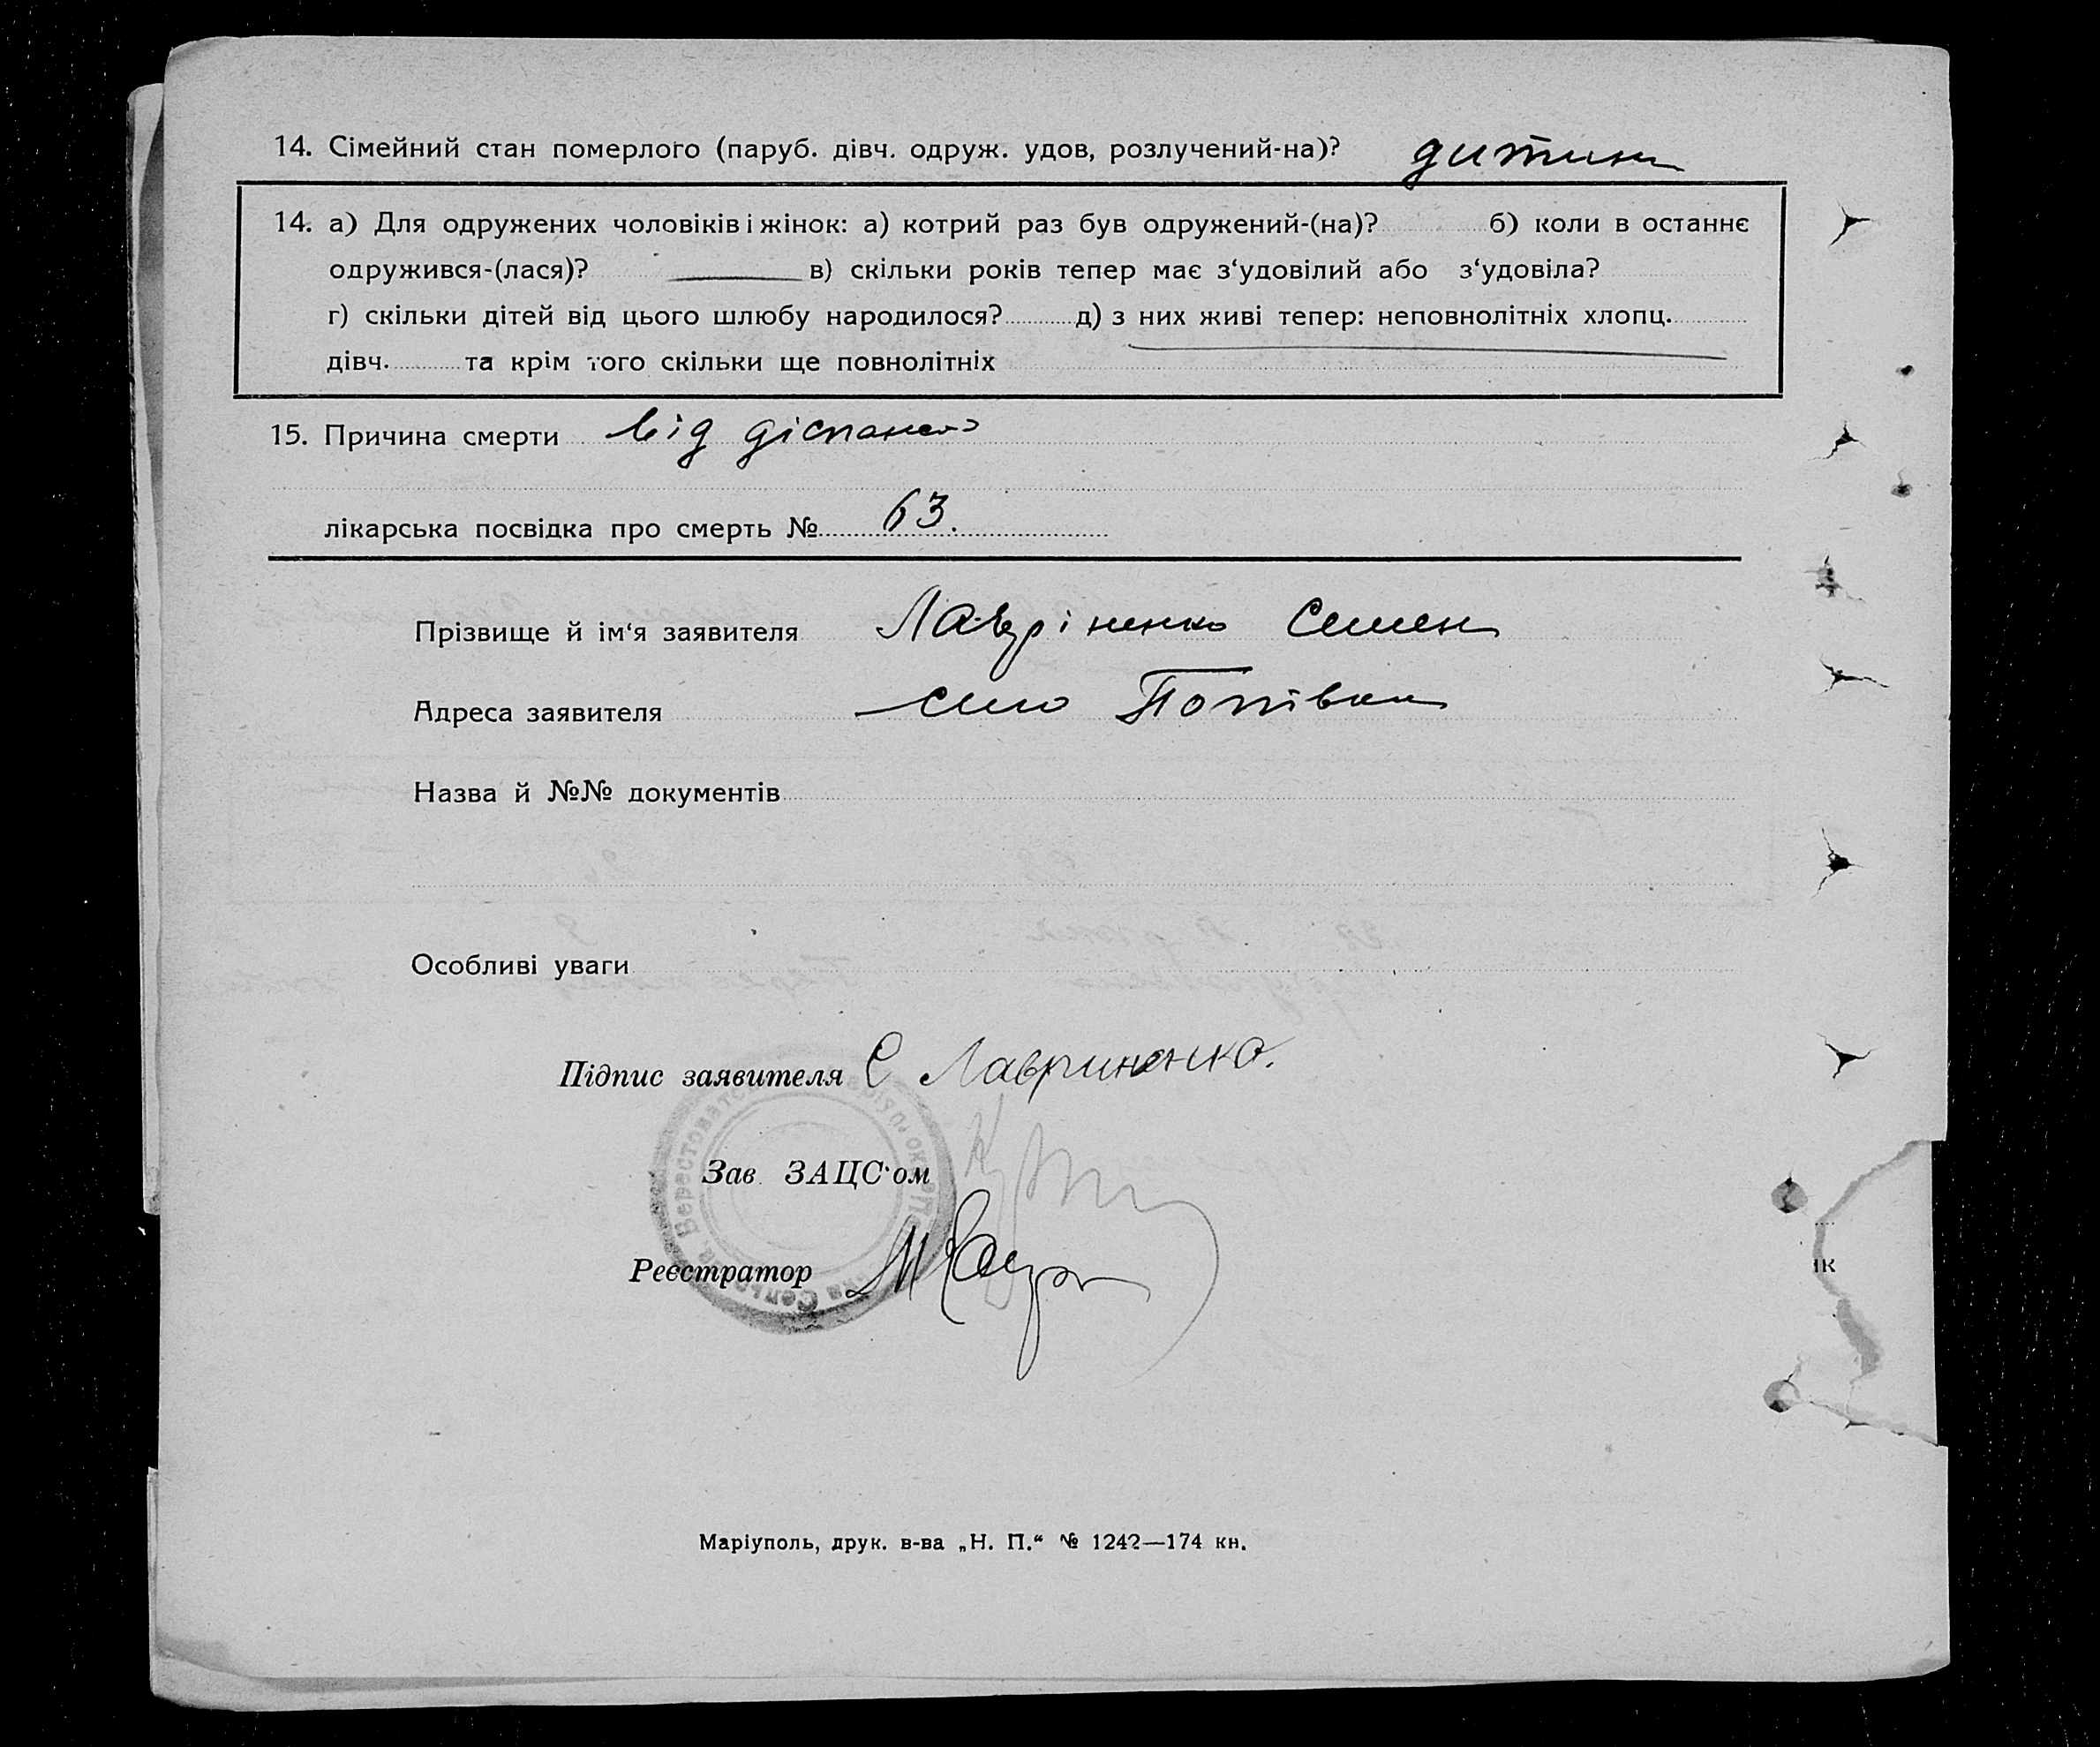 14. Сімейний стан померлого (паруб. дівч. одруж. удов, розлучений-на)? дитина
14. а) Для одружених чоловіків і жінок: а) котрий раз був одружений-(на)? б) коли в останнє
одружився-(лася)? в) скільки років тепер має з‘удовілий або з‘удовіла?
г) скільки дітей від цього шлюбу народилося? д) з них живі тепер: неповнолітніх хлопц.
дівч. та крім того скільки ще повнолітніх
15. Причина смерти від
лікарська посвідка про смерть № 63.
Прізвище й ім‘я заявителя Лавріненко Семен
Адреса заявителя село Попівка
Назва й №№ документів
Особливі уваги
Підпис заявителя С Лавриненко.
Зав. ЗАЦС‘ом
Реєстратор
ік
Маріуполь, друк. в-ва „Н. П.“ № 1242—174 кн.